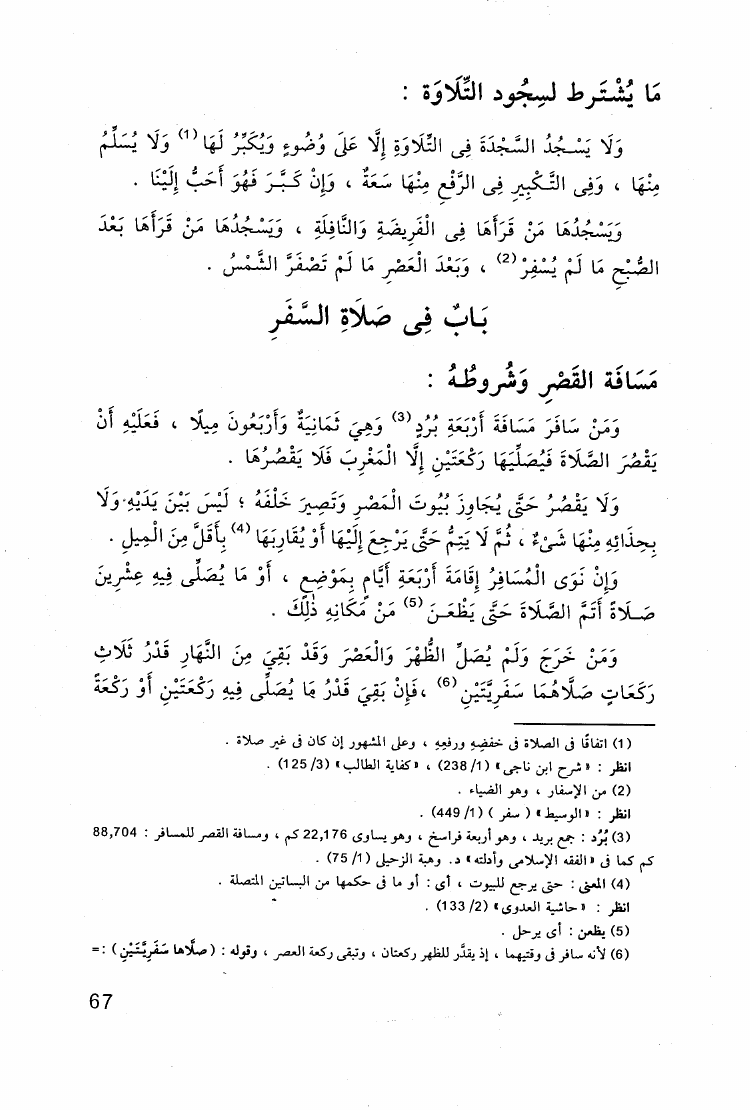 مَا يُشْتَرط لسِجُود التِّلَاوَة :
وَلَا يَسْجُدُ السَّجْدَةَ فِى التِّلَاوَةِ إِلَّا عَلَى وُضُوءٍ وَيُكَبِّرُ لَهَا (1) وَلَا يُسَلِّمُ
مِنْهَا ، وَفِى التَّكْبِيرِ فِى الرَّفْعِ مِنْهَا سَعَةٌ ، وَإِنْ كَبَّرَ فَهُوَ أَحَبُّ إِلَيْنَا .
وَيَسْجُدُهَا مَنْ قَرَأَهَا فِى الْفَرِيضَةِ وَالنَّافِلَةِ ، وَيَسْجُدُهَا مَنْ قَرَأَهَا بَعْدَ
الصُّبْحِ مَا لَمْ يُسْفِرْ (2) ، وَبَعْدَ الْعَصْرِ مَا لَمْ تَصْفَرَّ الشَّمْسُ .
بَابٌ فِى صَلَاةِ السَّفَرِ
مَسَافَة القَصْرِ وَشُروطُهُ :
وَمَنْ سَافَرَ مَسَافَةَ أَرْبَعَةِ بُرُدٍ (3) وَهِيَ ثَمَانِيَةٌ وَأَرْبَعُونَ مِيلًا ، فَعَلَيْهِ أَنْ
يَقْصُرَ الصَّلَاةَ فَيُصَلِّيَهَا رَكْعَتَيْنِ إِلَّا الْمَغْرِبَ فَلَا يَقْصُرُهَا .
وَلَا يَقْصُرُ حَتَّى يُجَاوِزَ بُيُوتَ الْمِصْرِ وَتَصِيرَ خَلْفَهُ ؛ لَيْسَ بَيْنَ يَدَيْهِ وَلَا
بِحِذَائِهِ مِنْهَا شَيْءٌ ، ثُمَّ لَا يَتِمُّ حَتَّى يَرْجِعَ إِلَيْهَا أَوْ يُقَارِبَهَا (4) بِأَقَلَّ مِنَ الْمِيلِ .
وَإِنْ نَوَى الْمُسَافِرُ إِقَامَةَ أَرْبَعَةِ أَيَّامٍ بِمَوْضِعٍ ، أَوْ مَا يُصَلِّى فِيهِ عِشْرِينَ
صَلَاةً أَتَمَّ الصَّلَاةَ حَتَّى يَظْعَنَ (5) مَنْ مَكَانِهِ ذَلِكَ .
وَمَنْ خَرَجَ وَلَمْ يُصَلِّ الظُّهْرَ وَالْعَصْرَ وَقَدْ بَقِيَ مِنَ النَّهَارِ قَدْرُ ثَلَاثِ
رَكَعَاتٍ صَلَّاهُمَا سَفَرِيَّتَيْنِ (6) ، فَإِنْ بَقِيَ قَدْرُ مَا يُصَلِّى فِيهِ رَكْعَتَيْنِ أَوْ رَكْعَةً
(1) اتفاقًا فى الصلاة فى خفضه ورفعه ، وعلى المشهور إن كان فى غير صلاة .
انظر : « شرح ابن ناجى » (1/ 238) ، « كفاية الطالب » (3/ 125) .
(2) من الإسفار ، وهو الضياء .
انظر : « الوسيط » ( سفر ) (1/ 449) .
(3) بُرُد : جمع بريد ، وهو أربعة فراسخ ، وهو يساوى 22,176 كم ، ومسافة القصر للمسافر : 88,704
كم كما فى « الفقه الإسلامى وأدلته » د. وهبة الزحيلى (1/ 75) .
(4) المعنى : حتى يرجع للبيوت ، أى : أو ما فى حكمها من البساتين المتصلة .
انظر : « حاشية العدوى » (2/ 133) .
(5) يظعن : أى يرحل .
(6) لأنه سافر فى وقتيهما ، إذ يقدَّر للظهر ركعتان ، وتبقى ركعة العصر ، وقوله : ( صلَّاها سَفَرِيَّتَيْنِ ) : =
67